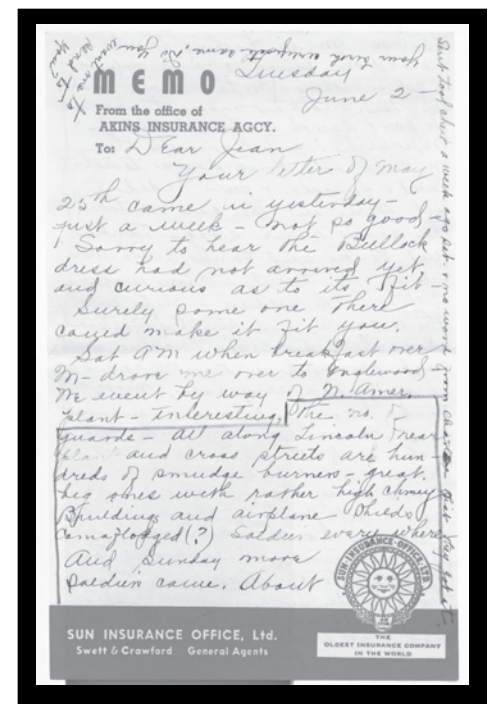 your birth certificate came, do you
want me to
send to
you?
Tuesday
MEMO
June 2 -
From the office of
AKINS INSURANCE AGCY.
To: Dear Jean
Your letter of May
25th came in yesterday -
just a week - not so good -
Sorry to hear the Bullock
dress had not arrived yet,
and curious as to its fit -
Surely some one there
could make it fit you.
Sat AM when breakfast over
M - drove me over to Inglewood
We went by way of N. Amer.
plant - interesting, the no. of
guards - all along Lincoln near
plant and cross streets are hun-
dreds of smudge burners - great
big ones with rather high chimney
Buildings and airplane sheds
camaflogged(?) Soldier every where
And Sunday more
soldiers came. About
Sent tool chest a week ago Sat. & no word from
SUN INSURANCE OFFICE, LTD
SUN INSURANCE OFFICE, Ltd.
Swett & Crawford General Agents
THE
OLDEST INSURANCE COMPANY
IN THE WORLD